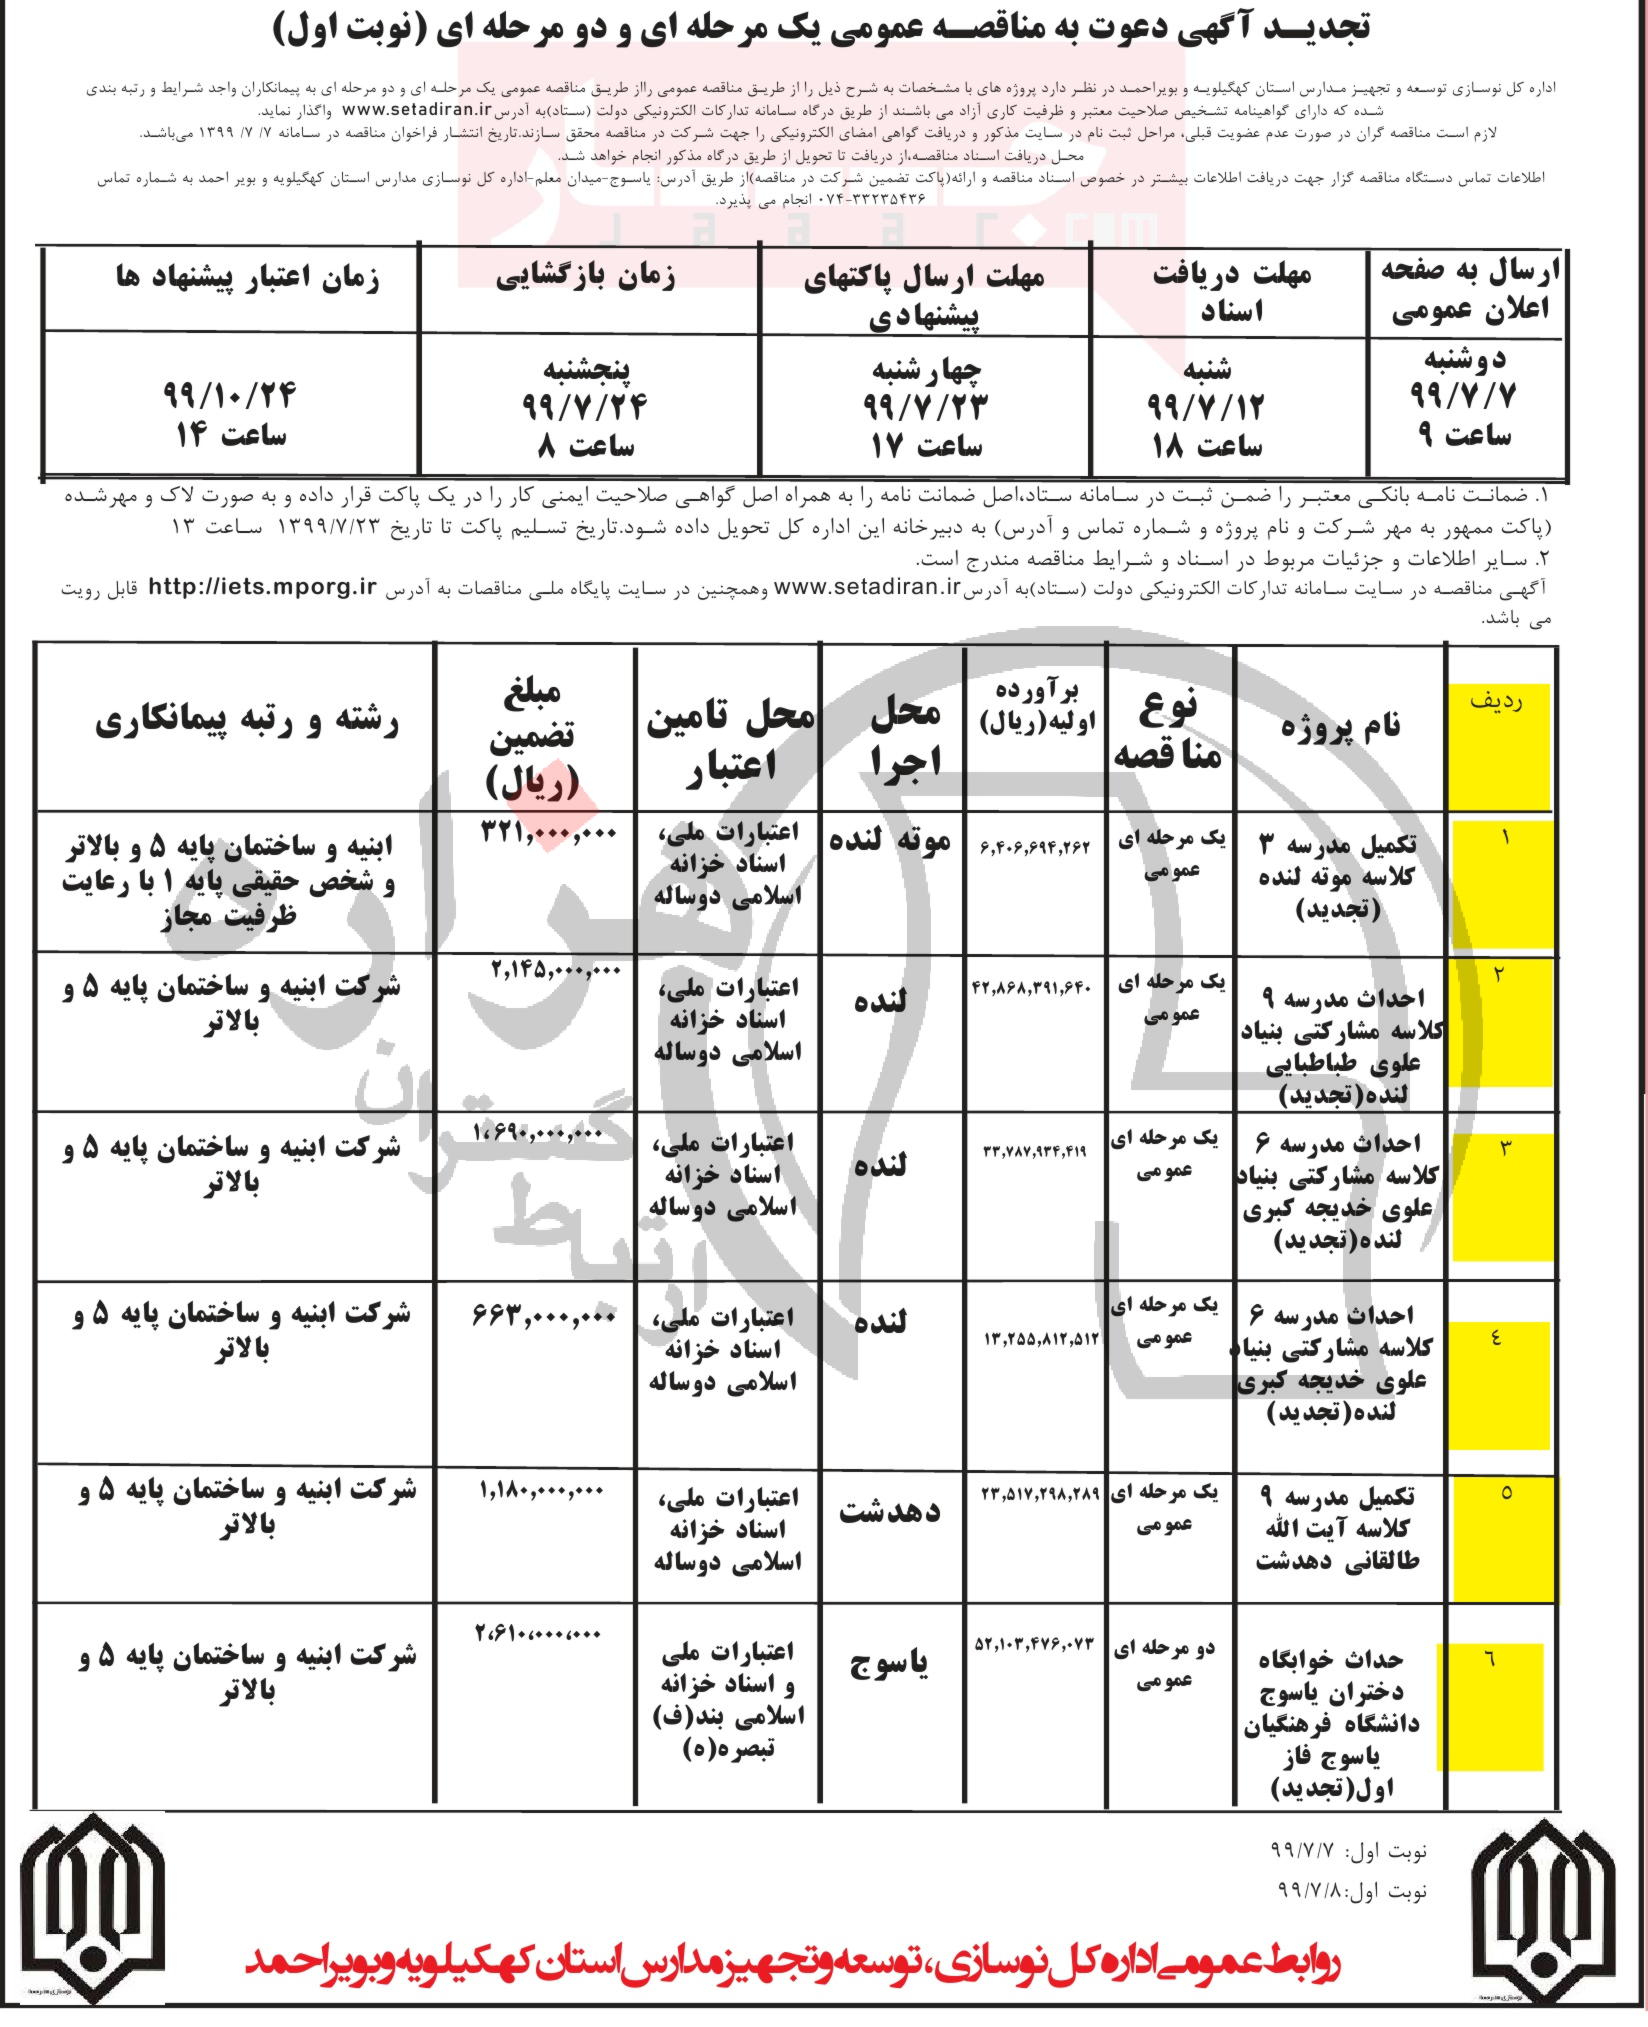 تجدیـد آگهی دعوت به مناقصـه عمومی یک مرحله ای و دو مرحله ای (نوبت اول)
اداره کل نوسازی توسعه و تجهیز مدارس استان کهگیلویه و بویراحمد در نظر دارد پروژه های با مشخصات به شرح ذیل را از طریق مناقصه عمومی رااز طریق مناقصه عمومی یک مرحله ای و دو مرحله ای به پیمانکاران واجد شرایط و رتبه بندی
شده که دارای گواهینامه تشخیص صلاحیت معتبر و ظرفیت کاری آزاد می باشند از طریق درگاه سامانه تدارکات الکترونیکی دولت (ستاد)به آدرس www.setadiran.ir واگذار نماید.
لازم است مناقصه گران در صورت عدم عضویت قبلی، مراحل ثبت نام در سایت مذکور و دریافت گواهی امضای الکترونیکی را جهت شرکت در مناقصه محقق سازند.تاریخ انتشار فراخوان مناقصه در سامانه ۷/ ۷/ ۱۳۹۹ می‌باشد.
محل دریافت اسناد مناقصه،از دریافت تا تحویل از طریق درگاه مذکور انجام خواهد شد.
اطلاعات تماس دستگاه مناقصه گزار جهت دریافت اطلاعات بیشتر در خصوص اسناد مناقصه و ارائه(پاکت تضمین شرکت در مناقصه)از طریق آدرس: یاسوج-میدان معلم-اداره کل نوسازی مدارس استان کهگیلویه و بویر احمد به شماره تماس
۰۷۴-۳۳۲۳۵۴۳۶ انجام می پذیرد.
جـار
Jaaar.com
ارسال به صفحه اعلان عمومی
مهلت دریافت اسناد
مهلت ارسال پاکتهای پیشنهادی
زمان بازگشایی
زمان اعتبار پیشنهاد ها
دوشنبه
۹۹/۷/۷
ساعت ۹
شنبه
۹۹/۷/۱۲
ساعت ۱۸
چهارشنبه
۹۹/۷/۲۳
ساعت ۱۷
پنجشنبه
۹۹/۷/۲۴
ساعت ۸
۹۹/۱۰/۲۴
ساعت ۱۴
۱. ضمانت نامه بانکی معتبر را ضمن ثبت در سامانه ستاد،اصل ضمانت نامه را به همراه اصل گواهی صلاحیت ایمنی کار را در یک پاکت قرار داده و به صورت لاک و مهرشده
(پاکت ممهور به مهر شرکت و نام پروژه و شماره تماس و آدرس) به دبیرخانه این اداره کل تحویل داده شود.تاریخ تسلیم پاکت تا تاریخ ۱۳۹۹/۷/۲۳ ساعت ۱۳
۲. سایر اطلاعات و جزئیات مربوط در اسناد و شرایط مناقصه مندرج است.
آگهی مناقصه در سایت سامانه تدارکات الکترونیکی دولت (ستاد)به آدرس www.setadiran.ir وهمچنین در سایت پایگاه ملی مناقصات به آدرس http://iets.mporg.ir قابل رویت
می باشد.
ردیف
نام پروژه
نوع مناقصه
برآورده اولیه(ریال)
محل اجرا
محل تامین اعتبار
مبلغ تضمین (ریال)
رشته و رتبه پیمانکاری
۱
تکمیل مدرسه ۳
کلاسه موته لنده
(تجدید)
یک مرحله ای
عمومی
۶,۴۰۶,۶۹۴,۲۶۲
موته لنده
اعتبارات ملی،
اسناد خزانه
اسلامی دوساله
۳۲۱,۰۰۰,۰۰۰
ابنیه و ساختمان پایه ۵ و بالاتر
و شخص حقیقی پایه ۱ با رعایت
ظرفیت مجاز
۲
احداث مدرسه ۹
کلاسه مشارکتی بنیاد
علوی طباطبایی
لنده(تجدید)
یک مرحله ای
عمومی
۴۲,۸۶۸,۳۹۱,۶۴۰
لنده
اعتبارات ملی،
اسناد خزانه
اسلامی دوساله
۲,۱۴۵,۰۰۰,۰۰۰
شرکت ابنیه و ساختمان پایه ۵ و
بالاتر
۳
احداث مدرسه ۶
کلاسه مشارکتی بنیاد
علوی خدیجه کبری
لنده(تجدید)
یک مرحله ای
عمومی
۳۳,۷۸۷,۹۳۴,۴۱۹
لنده
اعتبارات ملی،
اسناد خزانه
اسلامی دوساله
۱,۶۹۰,۰۰۰,۰۰۰
شرکت ابنیه و ساختمان پایه ۵ و
بالاتر
٤
احداث مدرسه ۶
کلاسه مشارکتی بنیاد
علوی خدیجه کبری
لنده(تجدید)
یک مرحله ای
عمومی
۱۳,۲۵۵,۸۱۲,۵۱۲
لنده
اعتبارات ملی،
اسناد خزانه
اسلامی دوساله
۶۶۳,۰۰۰,۰۰۰
شرکت ابنیه و ساختمان پایه ۵ و
بالاتر
٥
تکمیل مدرسه ۹
کلاسه آیت الله
طالقانی دهدشت
یک مرحله ای
عمومی
۲۳,۵۱۷,۲۹۸,۲۸۹
دهدشت
اعتبارات ملی،
اسناد خزانه
اسلامی دوساله
۱,۱۸۰,۰۰۰,۰۰۰
شرکت ابنیه و ساختمان پایه ۵ و
بالاتر
٦
حداث خوابگاه
دختران یاسوج
دانشگاه فرهنگیان
یاسوج فاز
اول(تجدید)
دو مرحله ای
عمومی
۵۲,۱۰۳,۴۷۶,۰۷۳
یاسوج
اعتبارات ملی
و اسناد خزانه
اسلامی بند(ف)
تبصره(ه)
۲,۶۱۰,۰۰۰,۰۰۰
شرکت ابنیه و ساختمان پایه ۵ و
بالاتر
هزاره
گستران
ارتباط
نوبت اول: ۹۹/۷/۷
نوبت اول:۹۹/۷/۸
روابط عمومی اداره کل نوسازی، توسعه و تجهیز مدارس استان کهکیلویه و بویراحمد